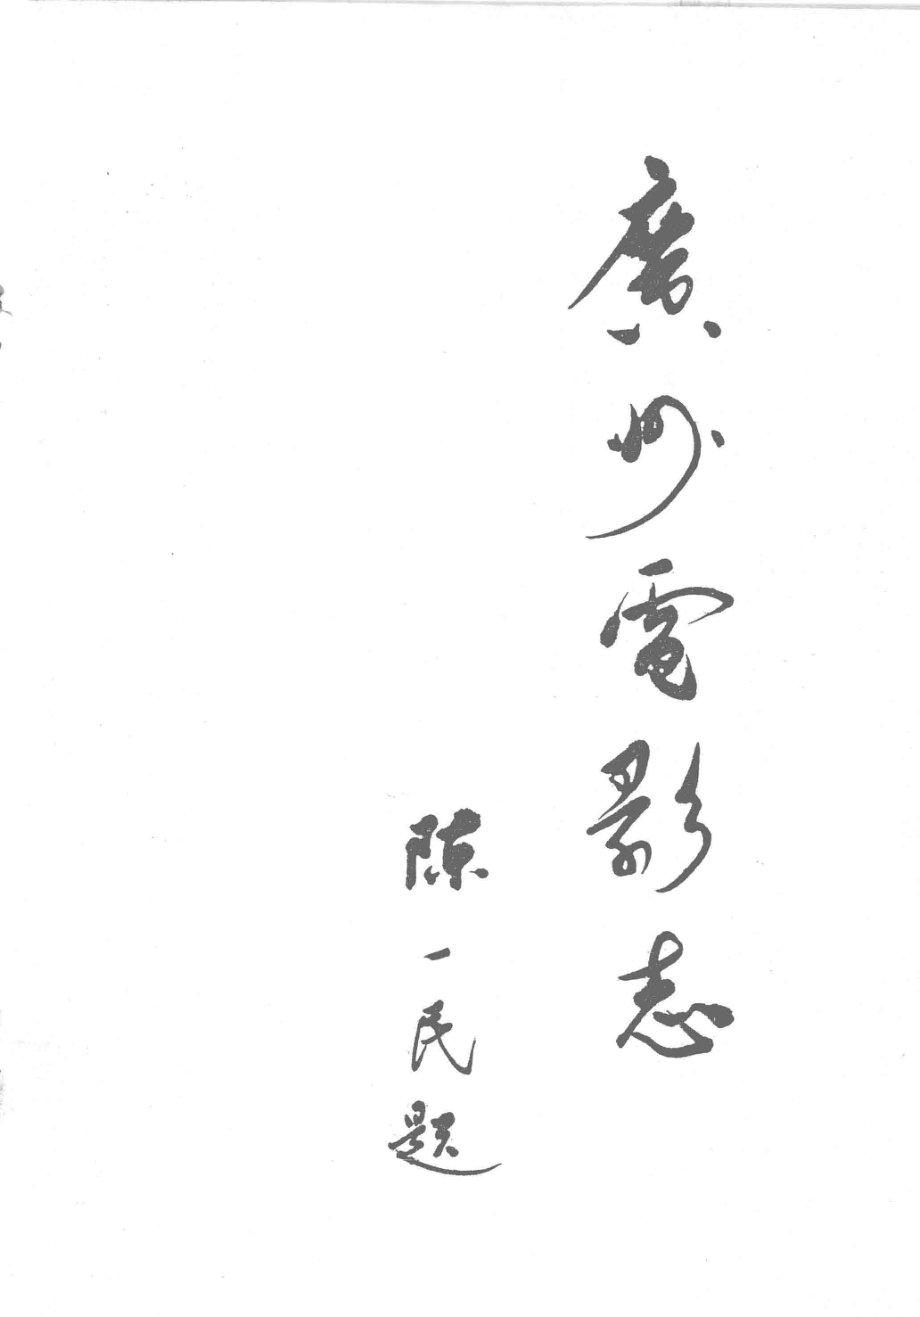 廣州電影志
陳一民題